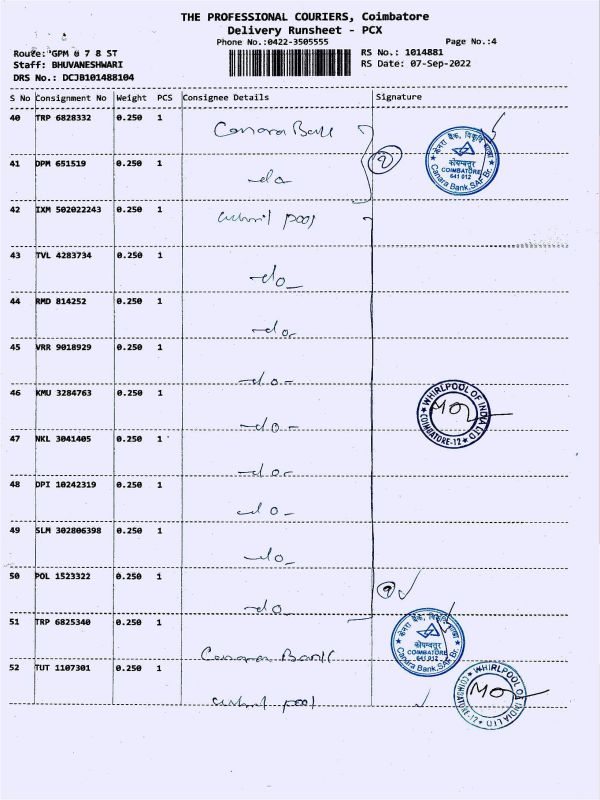 THE PROFESSIONAL COURIERS, Coimbatore
Delivery Runsheet - PCX
Phone No.:0422-3505555 Page No.:4
Route: GPM 6 7 8 ST RS No.: 1014881
Staff: BHUVANESHWARI RS Date: 07-Sep-2022
DRS No.: DCJB101488104
S No Consignment No Weight PCS Consignee Details Signature
40 TRP 6828332 0.250 1 Canara Bank
2
केनरा बैंक
कोयम्बतूर
COIMBATORE
641 012
Canara Bank, SAF Br.
41 DPM 651519 0.250 1 -do
42 IXM 502022243 0.250 1 pool
43 TVL 4283734 0.250 1 -do-
44 RMD 814252 0.250 1 -do-
45 VRR 9018929 0.250 1 -do-
46 KMU 3284763 0.250 1 -do-
WHIRLPOOL OF INDIA LTD
COIMBATORE-12
47 NKL 3041405 0.250 1 -do-
48 DPI 10242319 0.250 1 -do-
49 SLM 302806398 0.250 1 -do-
50 POL 1523322 0.250 1 -do-
9
51 TRP 6825340 0.250 1 Canara Bank
केनरा बैंक
कोयम्बतूर
COIMBATORE
641 012
Canara Bank, SAF Br.
52 TUT 1107301 0.250 1 pool
WHIRLPOOL OF INDIA LTD
COIMBATORE-12